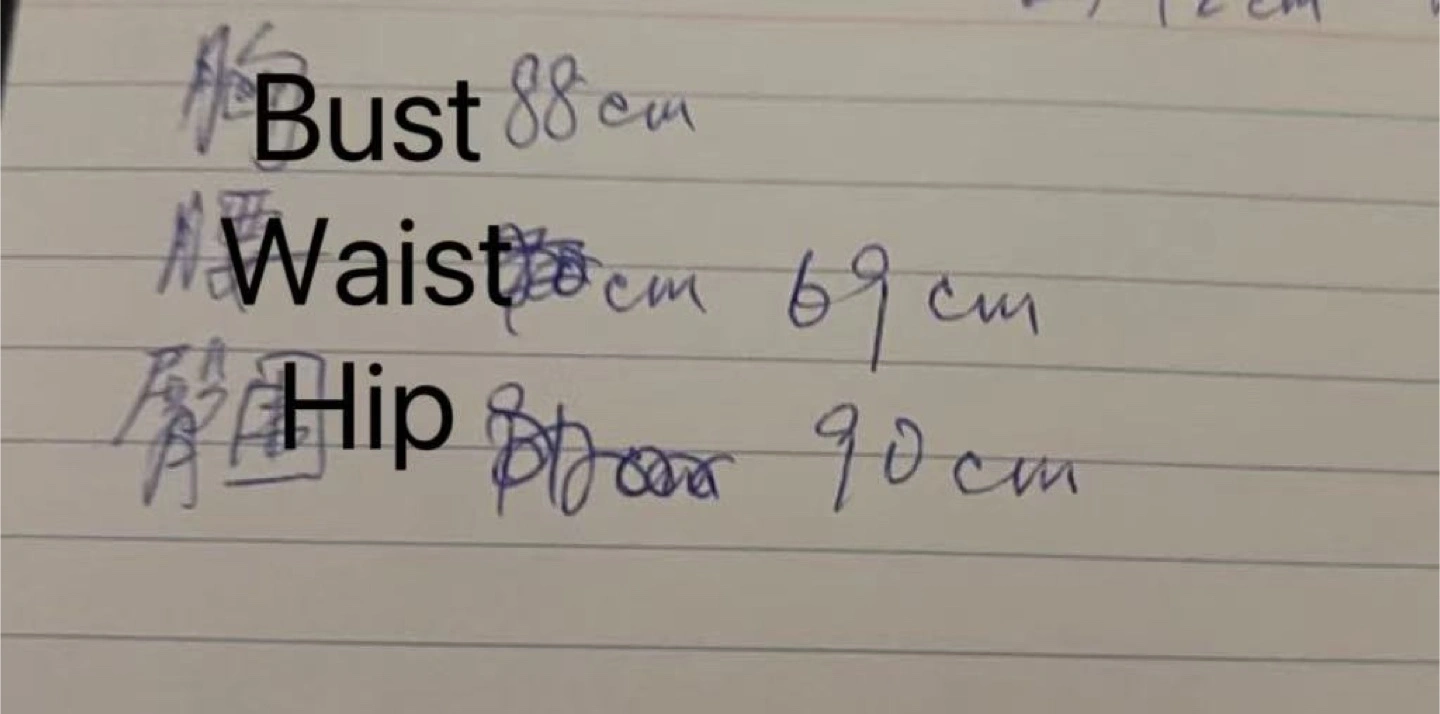 胸 Bust 88cm
腰 Waist cm 69cm
臀围 Hip 90cm